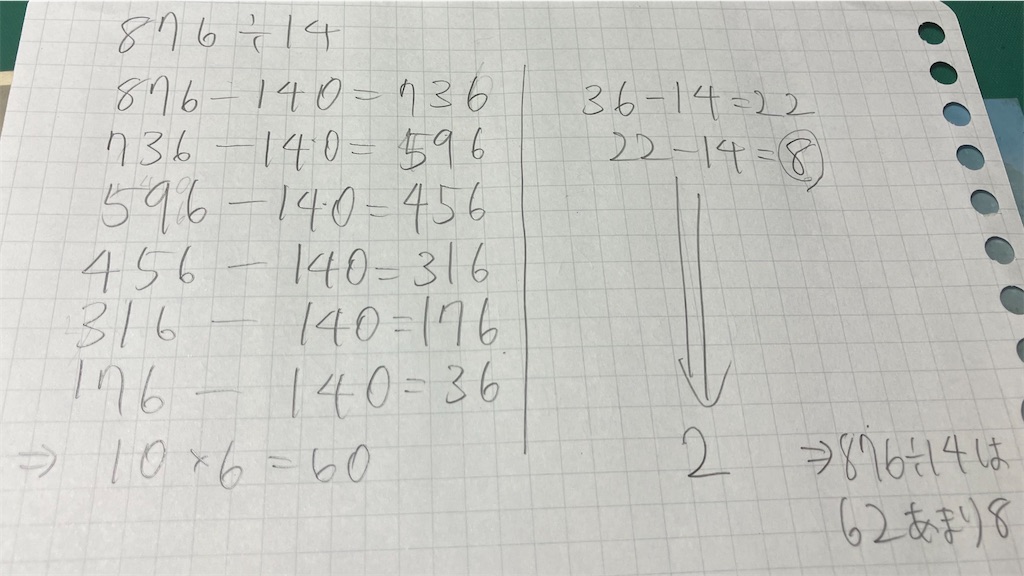 876÷14
876－140＝736
736－140＝596
596－140＝456
456－140＝316
316－140＝176
176－140＝36
⇒ 10×6＝60
36－14＝22
22－14＝⑧
2
⇒876÷14は
62あまり8